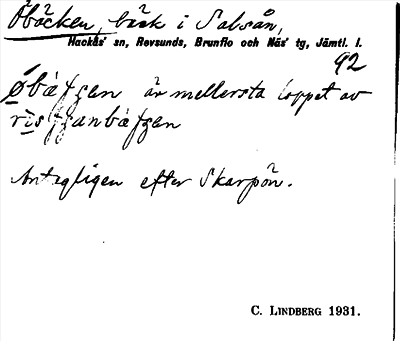 Öbäcken, bäck i Salsån,
Hackås' sn, Revsunds, Brunflo och Näs' tg, Jämtl. l.
92
är mellersta loppet av
Antagligen efter Skarpön.
C. LINDBERG 1931.